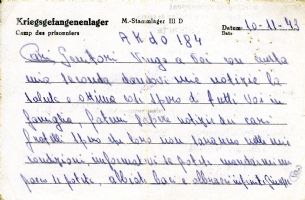 Kriegsgefangenenlager M.-Stammlager III D Datum: 10-11-43
Camp des prisonniers Date
A K do 184
Cari Genitori Vengo a Voi con questa
mia seconda dandovi mie notizie la
salute è ottima così spero di tutti Voi in
famiglia, fatemi sapere notizie dei cari
fratelli spero che loro non saranno nelle mie
condizioni, informatevi se potete mandarmi un
pacco se potete, abbiate baci e abbracci